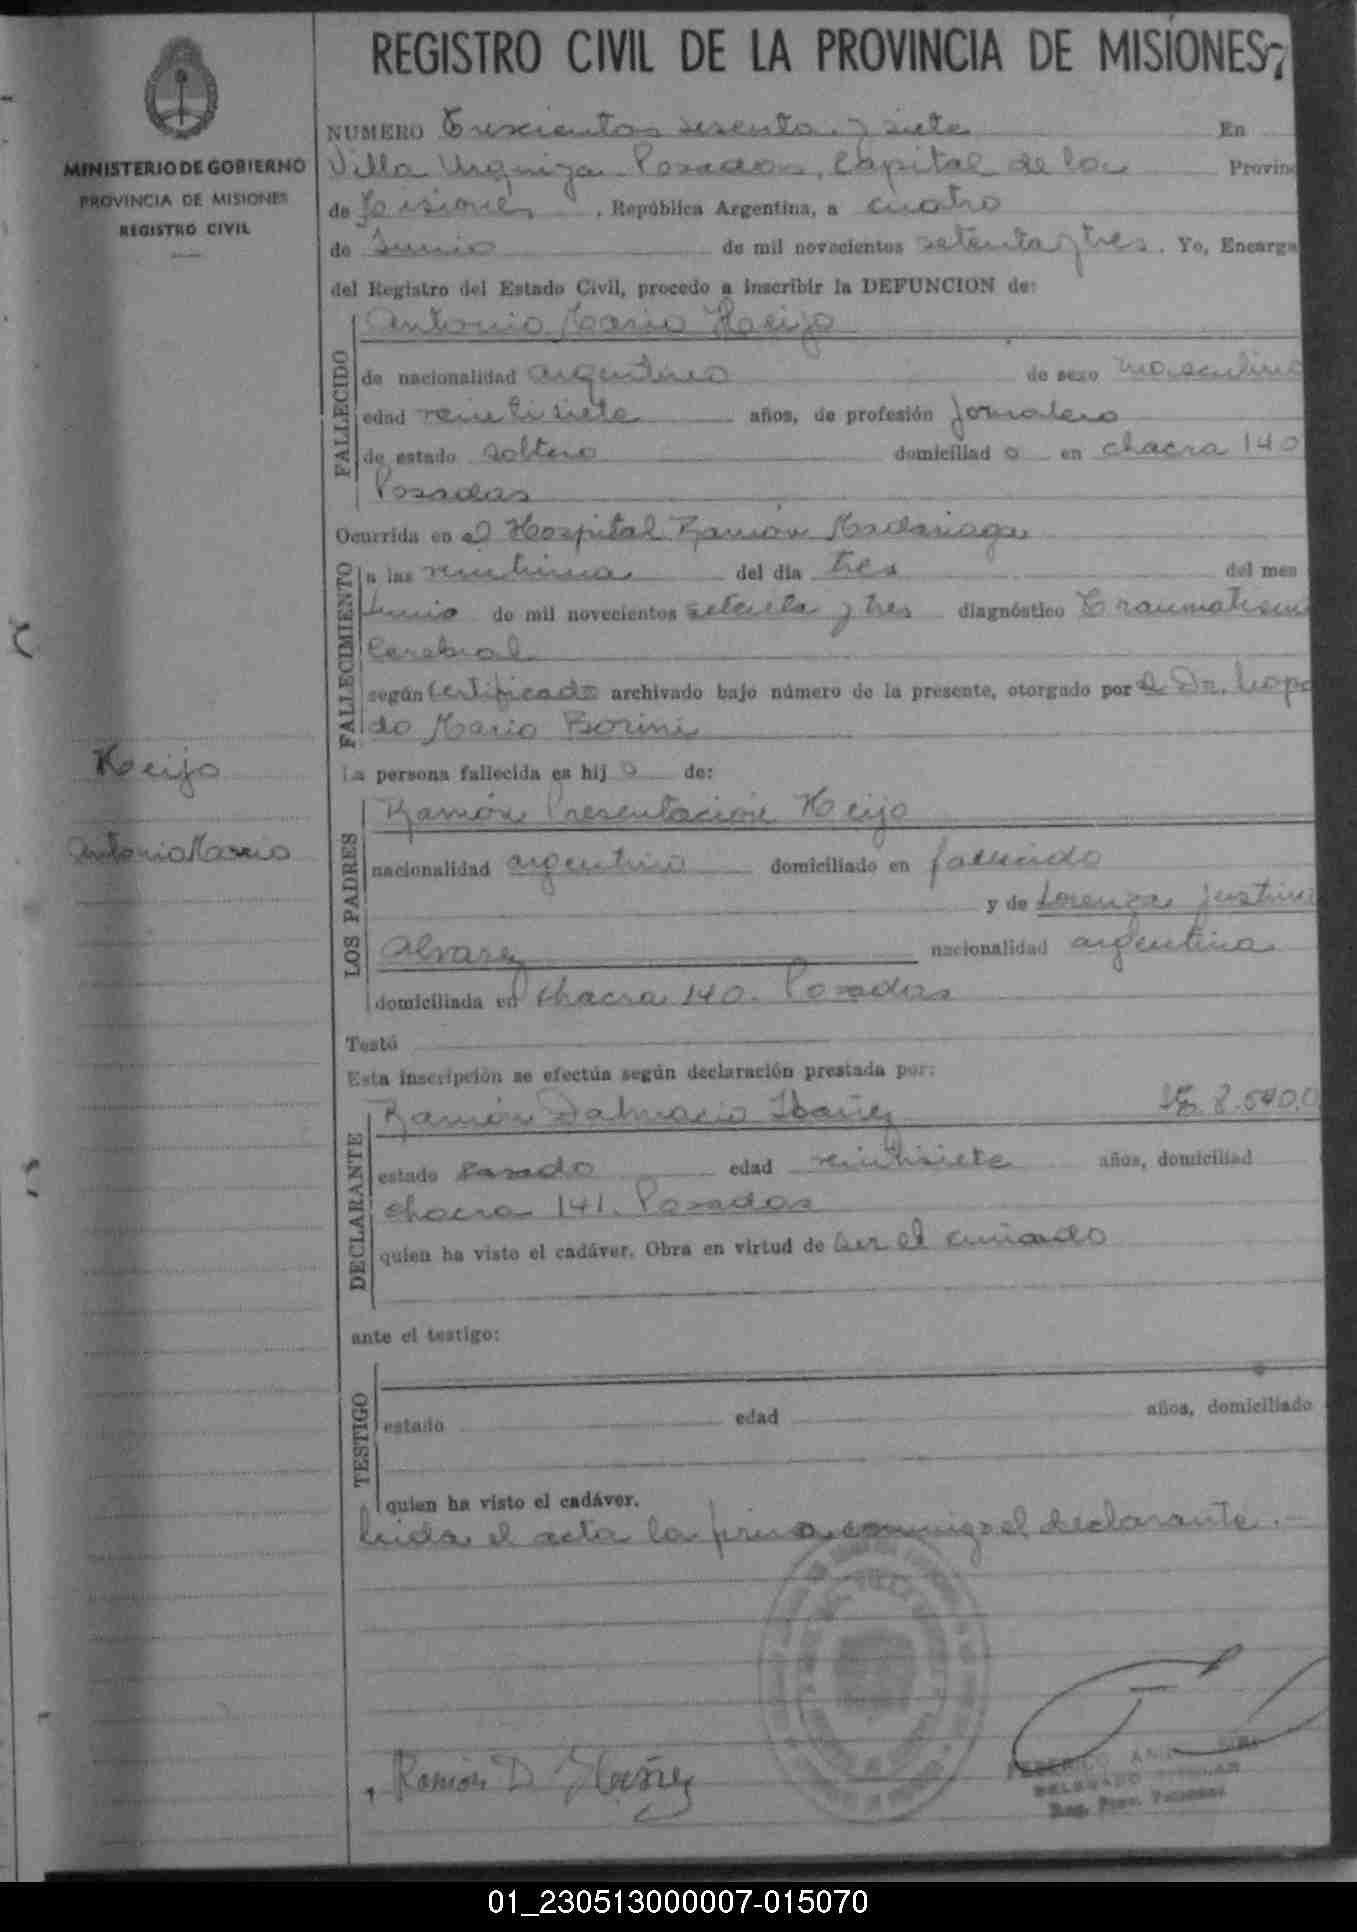 REGISTRO CIVIL DE LA PROVINCIA DE MISIONES
MINISTERIO DE GOBIERNO
PROVINCIA DE MISIONES
REGISTRO CIVIL
NUMERO Trescientos sesenta y siete En
Villa Urquiza Posadas, Capital de la Provinc
de Misiones, República Argentina, a cuatro
de Junio de mil novecientos setenta y tres. Yo, Encarga
del Registro del Estado Civil, procedo a inscribir la DEFUNCION de:
FALLECIDO
Antonio Mario Meijo
de nacionalidad argentino de sexo masculino
edad veintisiete años, de profesión Jornalero
de estado soltero domiciliad o en chacra 140
Posadas
Ocurrida en el Hospital Ramón Madariaga
FALLECIMIENTO
a las veintiuna del día tres del mes
Junio de mil novecientos setenta y tres diagnóstico Traumatism
Cerebral
según Certificado archivado bajo número de la presente, otorgado por el Dr. Leopo
do Mario Borini
Meijo
Antonio Mario
La persona fallecida es hij o de:
LOS PADRES
Ramón Presentación Meijo
nacionalidad argentino domiciliado en fallecido
y de Lorenza Justina
Alvarez nacionalidad argentina
domiciliada en chacra 140. Posadas
Testó
Esta inscripción se efectúa según declaración prestada por:
DECLARANTE
Ramón Dalmacio Ibañez 8.540.0
estado casado edad veintisiete años, domiciliad
chacra 141. Posadas
quien ha visto el cadáver. Obra en virtud de ser el cuñado
ante el testigo:
TESTIGO
estado edad años, domiciliado
quien ha visto el cadáver.
Leida el acta la firma conmigo el declarante.-
Ramón D Ibañez
DELEGADO TITULAR
01_230513000007-015070